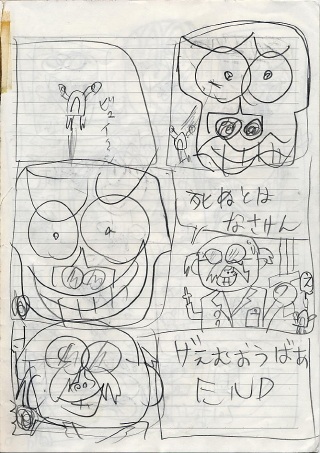 ビュイーン
死ねとは
なさけん
げえむおうばあ
END